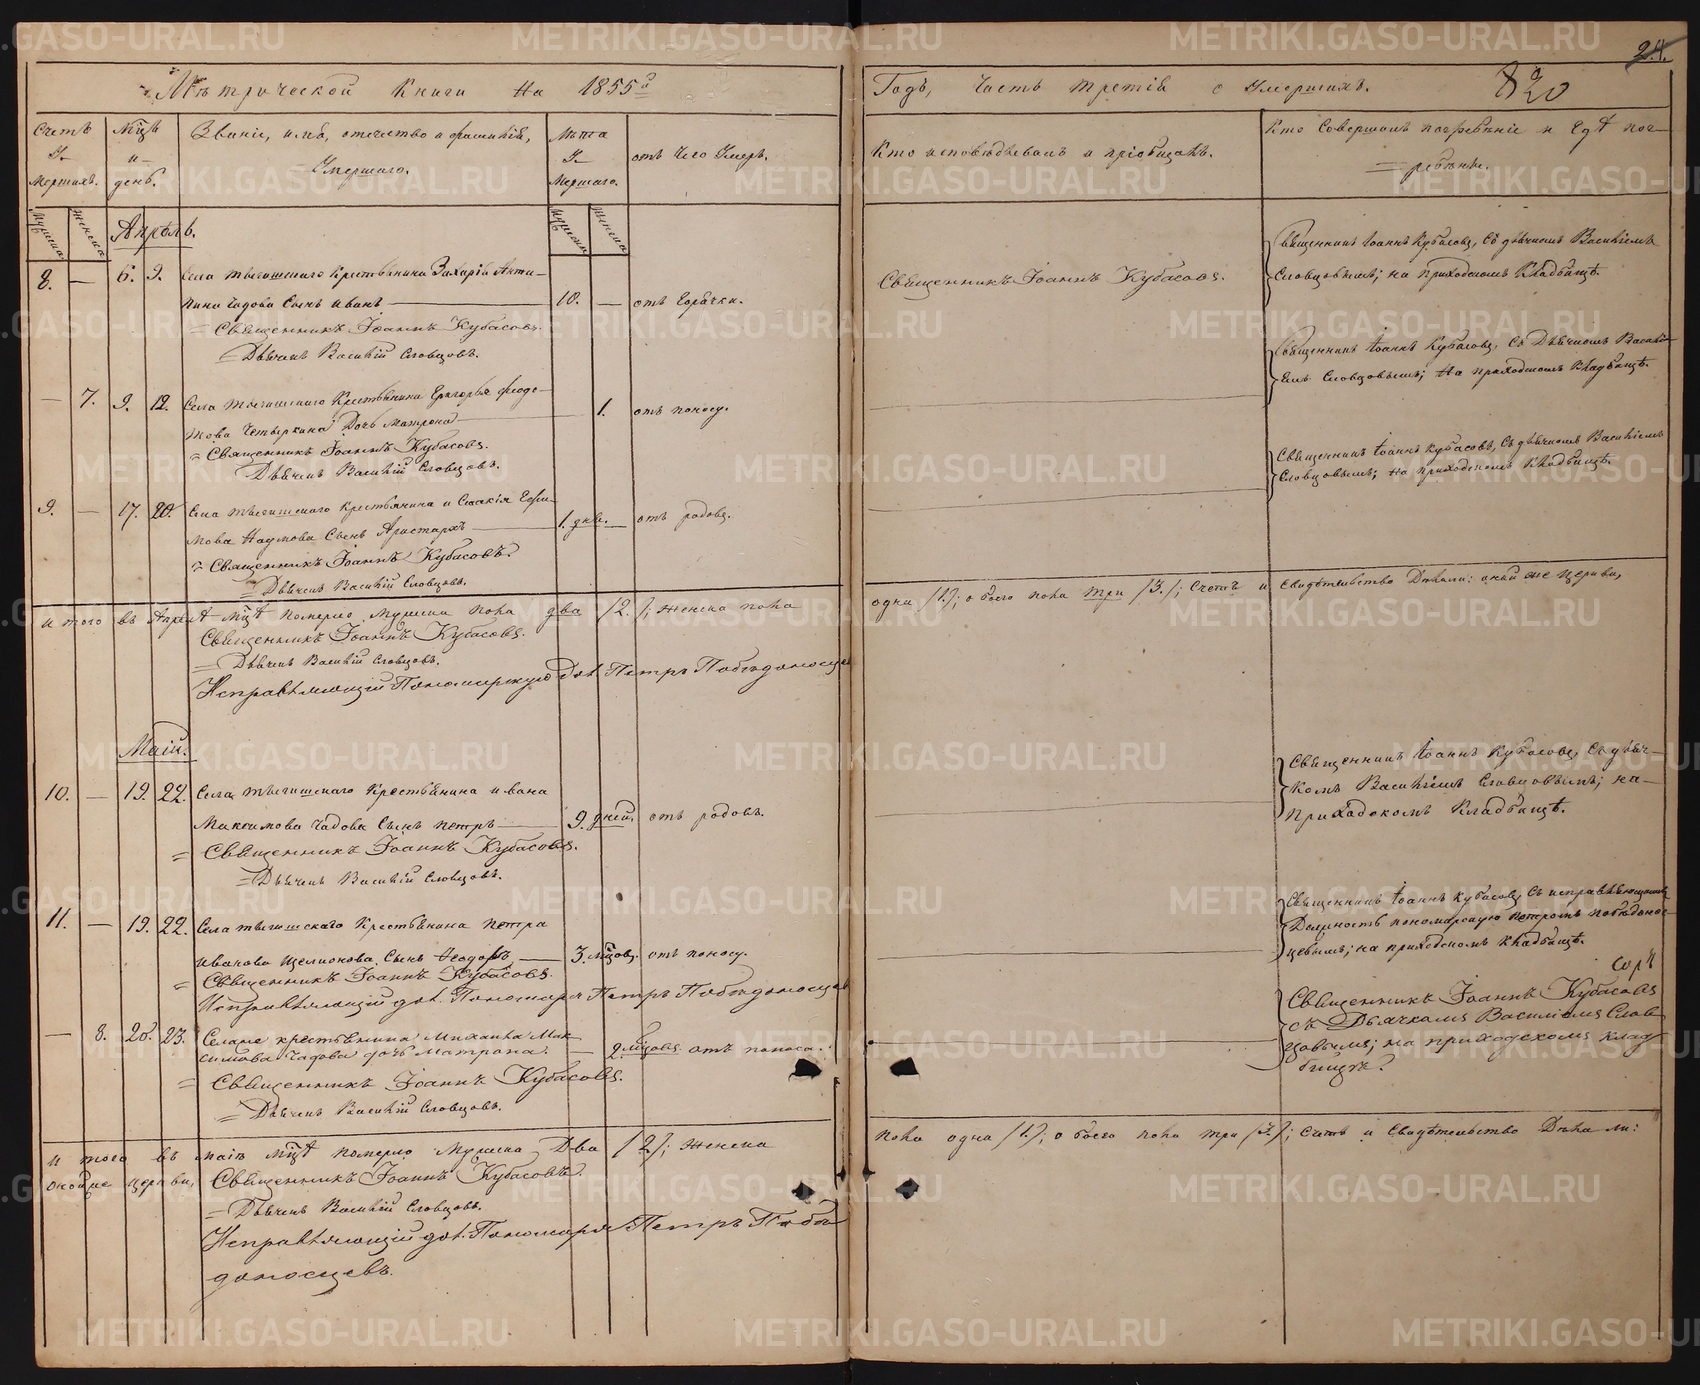 Метрической Книги на 1855й
Счетъ У-мершихъ.
Мцъ и день.
Званіе, имя, отчество и фамилія, Умершаго.
Лѣта Умершаго.
отъ чего Умеръ.
мужска женска
мужска женска
Апрѣль.
8. — 6. 9. Села тыгишскаго Крестьянина Захарія Анти-
пина Чадова Сынъ Иванъ 10. — отъ Горячки.
Священникъ Іоаннъ Кубасовъ.
Дьячекъ Василій Словцовъ.
— 7. 9. 12. Села тыгишскаго Крестьянина Григорья Федо-
това Четыркина Дочь Матрона — 1. отъ поносу.
Священникъ Іоаннъ Кубасовъ.
Дьячекъ Василій Словцовъ.
9. — 17. 20. Села тыгишскаго Крестьянина Исаакія Ефи-
мова Наумова Сынъ Аристархъ 1. дня. — отъ родовъ.
Священникъ Іоаннъ Кубасовъ.
Дьячекъ Василій Словцовъ.
и того въ Апрелѣ мцѣ померло мужска пола два /2./; женска пола
Священникъ Іоаннъ Кубасовъ.
Дьячекъ Василій Словцовъ.
Исправляющій Пономарскую дол. Петръ Побѣдоносцев
Маій.
10. — 19. 22. Села тыгишскаго Крестьянина Ивана
Максимова Чадова Сынъ петръ 9. дней. отъ родовъ.
Священникъ Іоаннъ Кубасовъ.
Дьячекъ Василій Словцовъ.
11. — 19. 22. Села тыгишскаго Крестьянина петра
Иванова Щелконова Сынъ Ѳеодоръ 3. мцовъ. отъ поносу.
Священникъ Іоаннъ Кубасовъ.
Исправляющій дол. Пономаря Петръ Побѣдоносцев
— 8. 20. 23. Селаже крестьянина Михаила Мак-
симова Чадова дочь Матрона. — 2 мцовъ отъ поноса.
Священникъ Іоаннъ Кубасовъ.
Дьячекъ Василій Словцовъ.
и того въ маіѣ мцѣ померло Мужска Два /2/; женска
оной же церкви,
Священникъ Іоаннъ Кубасовъ.
Дьячекъ Василій Словцовъ.
Исправляющій дол. Пономаря Петръ Побѣ
доносцевъ.
24.
820
Годъ, Часть третія о Умершихъ.
Кто исповѣдывалъ и пріобщалъ.
Кто Совершалъ погребеніе и Гдѣ пог-
ребены.
Священникъ Іоаннъ Кубасовъ.
Священникъ Іоаннъ Кубасовъ, Съ дьячкомъ Василіемъ
Словцовымъ; на приходскомъ Кладбищѣ.
Священникъ Іоаннъ Кубасовъ, Съ Дьячкомъ Василі-
емъ Словцовымъ; На приходскомъ Кладбищѣ.
Священникъ Іоаннъ Кубасовъ, Съ дьячкомъ Василіемъ
Словцовымъ; на приходскомъ Кладбищѣ.
одна /1./; обоего пола три /3./; Счетъ и Свидѣтельство Дѣлали: оной же Церкви,
Священникъ Іоаннъ Кубасовъ, Съ дьяч-
комъ Василіемъ Словцовымъ; на
приходскомъ Кладбищѣ.
Священникъ Іоаннъ Кубасовъ, Съ исправляющимъ
Должность пономарскую петромъ побѣдонос-
цевымъ; на приходскомъ Кладбищѣ.
Священникъ Іоаннъ Кубасовъ
съ Дьячкомъ Василіемъ Слов-
цовымъ; на приходскомъ клад-
бищѣ.
пола одна /1./; обоего пола три /3./; Счетъ и Свидѣтельство Дѣлали:
METRIKI.GASO-URAL.RU